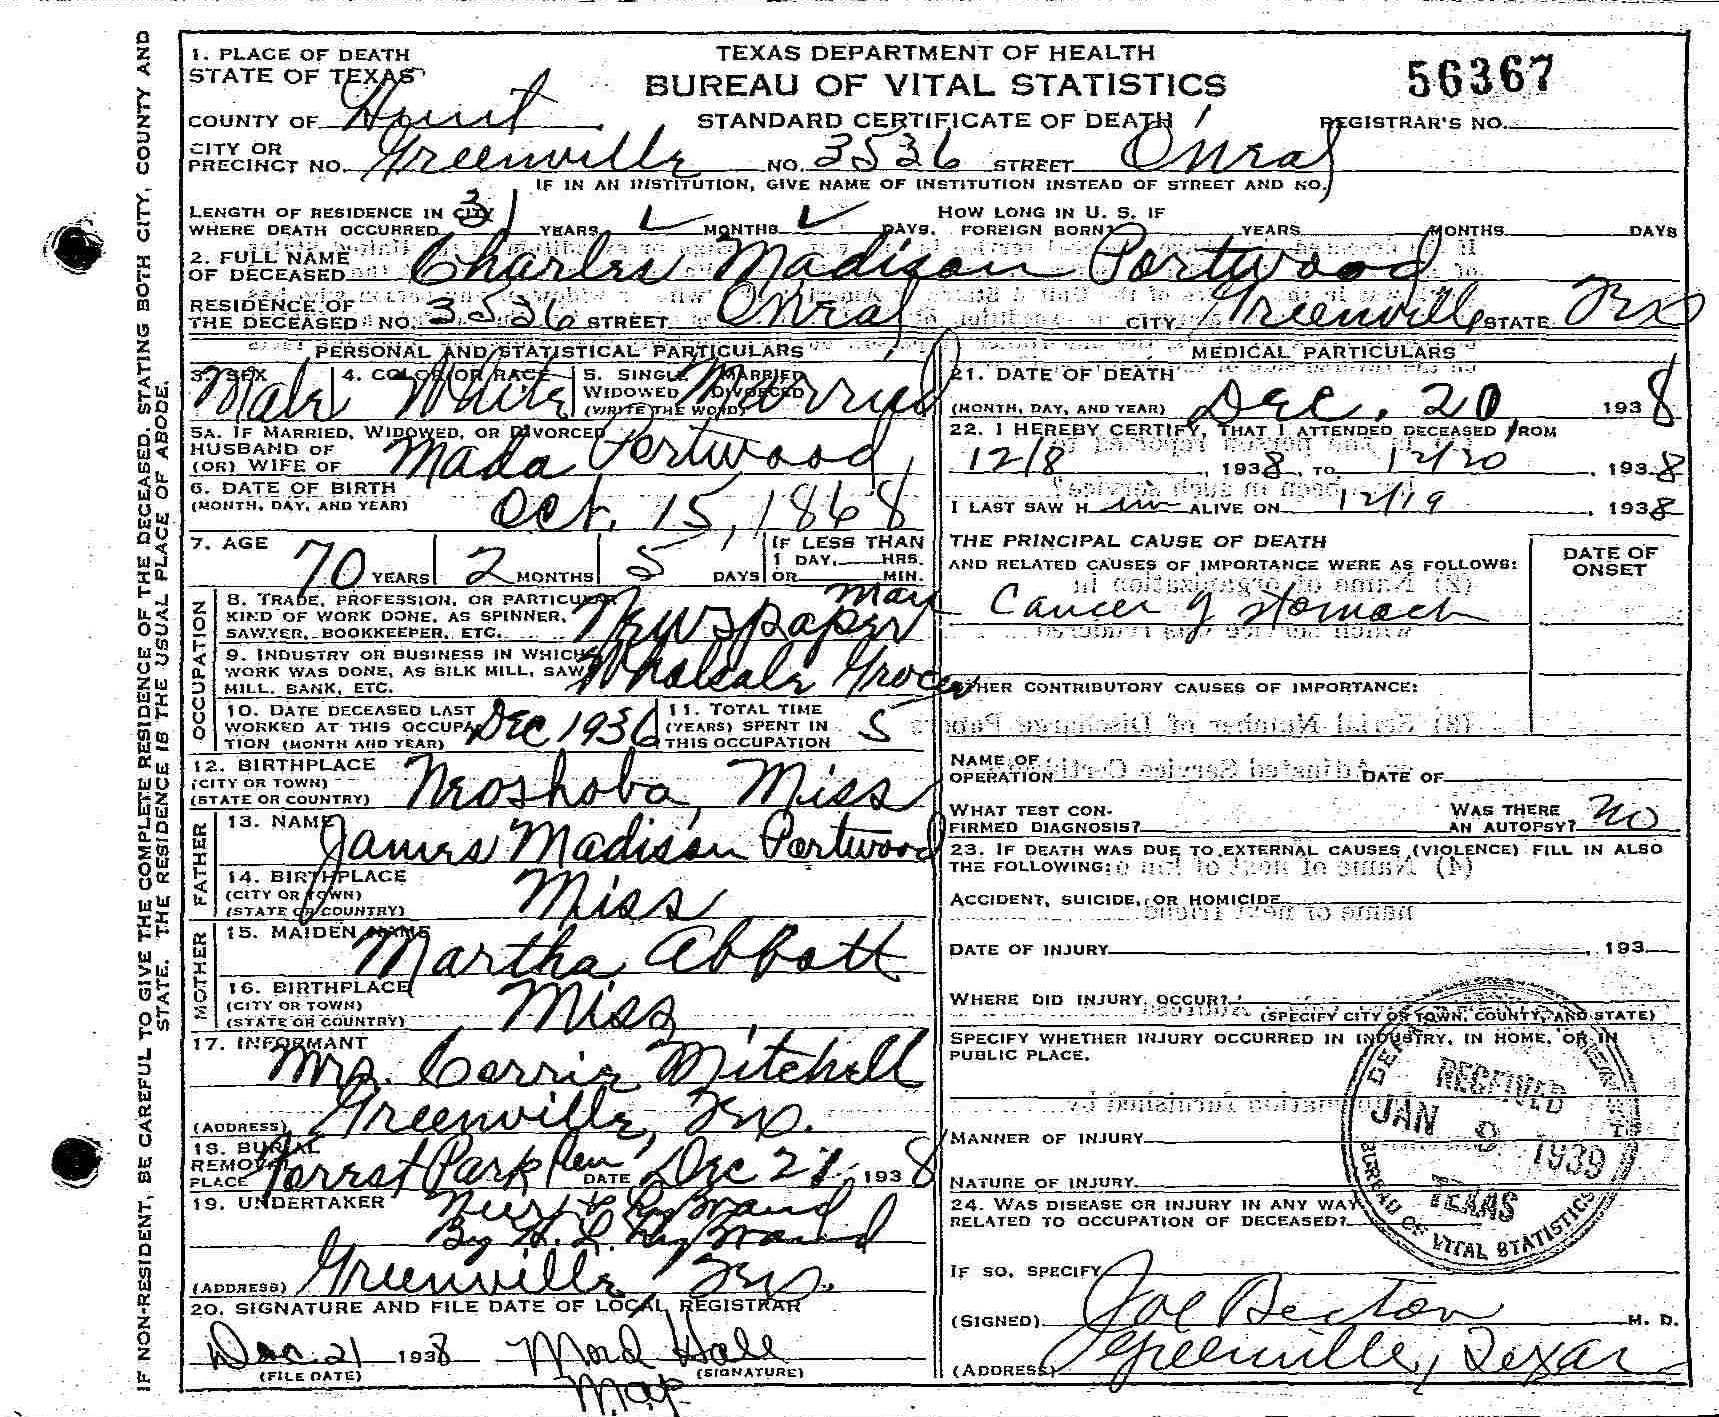 1. PLACE OF DEATH
STATE OF TEXAS
TEXAS DEPARTMENT OF HEALTH
BUREAU OF VITAL STATISTICS
STANDARD CERTIFICATE OF DEATH
56367
COUNTY OF Hunt
REGISTRAR'S NO.
CITY OR PRECINCT NO. Greenville NO. 3536 STREET O'Neal
IF IN AN INSTITUTION, GIVE NAME OF INSTITUTION INSTEAD OF STREET AND NO.
LENGTH OF RESIDENCE IN CITY WHERE DEATH OCCURRED 31 YEARS MONTHS DAYS. HOW LONG IN U. S. IF FOREIGN BORN? YEARS MONTHS DAYS
2. FULL NAME OF DECEASED Charles Madison Portwood
RESIDENCE OF THE DECEASED NO. 3536 STREET O'Neal CITY Greenville STATE Tex
PERSONAL AND STATISTICAL PARTICULARS
3. SEX Male 4. COLOR OR RACE White 5. SINGLE MARRIED WIDOWED DIVORCED (WRITE THE WORD) Married
5A. IF MARRIED, WIDOWED, OR DIVORCED
HUSBAND OF (OR) WIFE OF Mada Portwood
6. DATE OF BIRTH (MONTH, DAY, AND YEAR) Oct. 15, 1868
7. AGE 70 YEARS 2 MONTHS 5 DAYS IF LESS THAN 1 DAY, HRS. OR MIN.
OCCUPATION
8. TRADE, PROFESSION, OR PARTICULAR KIND OF WORK DONE, AS SPINNER, SAWYER, BOOKKEEPER, ETC. Newspaper Man
9. INDUSTRY OR BUSINESS IN WHICH WORK WAS DONE, AS SILK MILL, SAW MILL, BANK, ETC. Wholsale Grocer
10. DATE DECEASED LAST WORKED AT THIS OCCUPATION (MONTH AND YEAR) Dec 1936 11. TOTAL TIME (YEARS) SPENT IN THIS OCCUPATION 5
12. BIRTHPLACE (CITY OR TOWN) (STATE OR COUNTRY) Neoshoba, Miss
FATHER
13. NAME James Madison Portwood
14. BIRTHPLACE (CITY OR TOWN) (STATE OR COUNTRY) Miss
MOTHER
15. MAIDEN NAME Martha Abbott
16. BIRTHPLACE (CITY OR TOWN) (STATE OR COUNTRY) Miss
17. INFORMANT Mrs. Corrie Mitchell
(ADDRESS) Greenville, Tex.
18. BURIAL REMOVAL PLACE Forrest Park Cem DATE Dec 21 1938
19. UNDERTAKER
By H. L.
(ADDRESS) Greenville Tex.
20. SIGNATURE AND FILE DATE OF LOCAL REGISTRAR
Dec. 21 1938 Hale
(FILE DATE) (SIGNATURE)
MEDICAL PARTICULARS
21. DATE OF DEATH (MONTH, DAY, AND YEAR) Dec. 20, 1938
22. I HEREBY CERTIFY, THAT I ATTENDED DECEASED FROM
12/8, 1938, TO 12/20, 1938
I LAST SAW H im ALIVE ON 12/19, 1938
THE PRINCIPAL CAUSE OF DEATH AND RELATED CAUSES OF IMPORTANCE WERE AS FOLLOWS: DATE OF ONSET
Cancer of Stomach
OTHER CONTRIBUTORY CAUSES OF IMPORTANCE:
NAME OF OPERATION DATE OF
WHAT TEST CONFIRMED DIAGNOSIS? WAS THERE AN AUTOPSY? No
23. IF DEATH WAS DUE TO EXTERNAL CAUSES (VIOLENCE) FILL IN ALSO THE FOLLOWING:
ACCIDENT, SUICIDE, OR HOMICIDE
DATE OF INJURY , 193
WHERE DID INJURY OCCUR?
(SPECIFY CITY OR TOWN, COUNTY, AND STATE)
SPECIFY WHETHER INJURY OCCURRED IN INDUSTRY, IN HOME, OR IN PUBLIC PLACE.
MANNER OF INJURY
NATURE OF INJURY
24. WAS DISEASE OR INJURY IN ANY WAY RELATED TO OCCUPATION OF DECEASED?
IF SO, SPECIFY
(SIGNED) Joe Becton M. D.
(ADDRESS) Greenville, Texas
RECEIVED
JAN 9 1939
TEXAS
BUREAU OF VITAL STATISTICS
IF NON-RESIDENT, BE CAREFUL TO GIVE THE COMPLETE RESIDENCE OF THE DECEASED, STATING BOTH CITY, COUNTY AND
STATE. THE RESIDENCE IS THE USUAL PLACE OF ABODE.